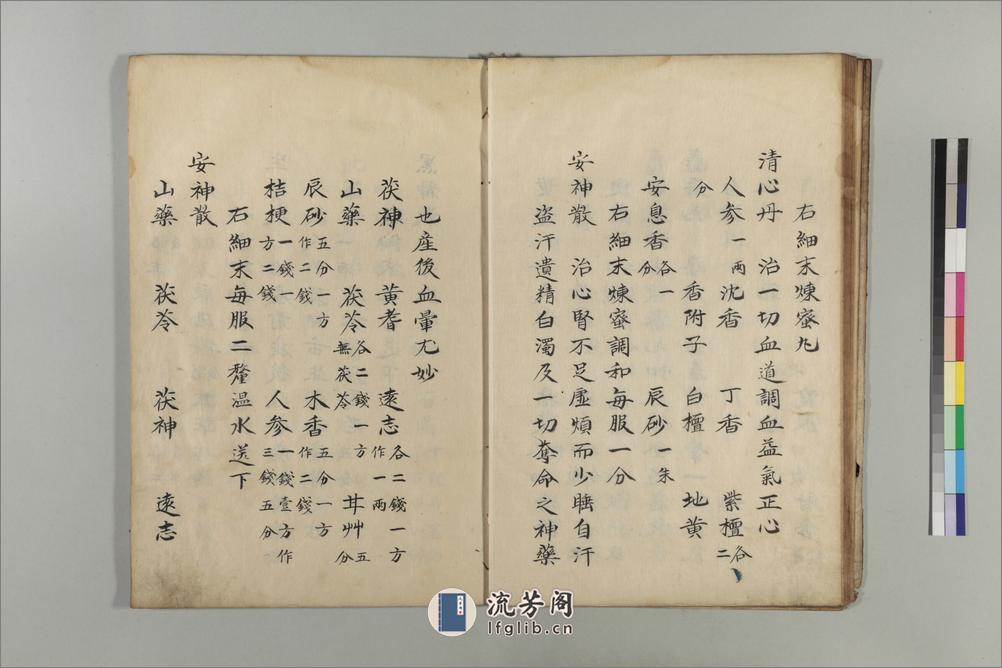 右細末煉蜜丸
清心丹　治一切血道調血益氣正心
人参一兩 沈香　丁香　紫檀各二
分　香附子　白檀　地黄
安息香各一分　辰砂一朱
右細末煉蜜調和每服一分
安神散　治心腎不足虛煩而少睡自汗
盗汗遺精白濁及一切奪命之神藥
也産後血暈尤妙
茯神　黄耆　遠志各二錢一方作一兩
山藥　茯苓各二錢一方無茯苓　甘艸五分
辰砂五分一方作二錢　木香五分一方作二錢
桔梗一錢一方二錢　人参一錢壹方作三錢五分
右細末每服二釐温水送下
安神散
山藥　茯苓　茯神　遠志
流芳阁
lfglib.cn